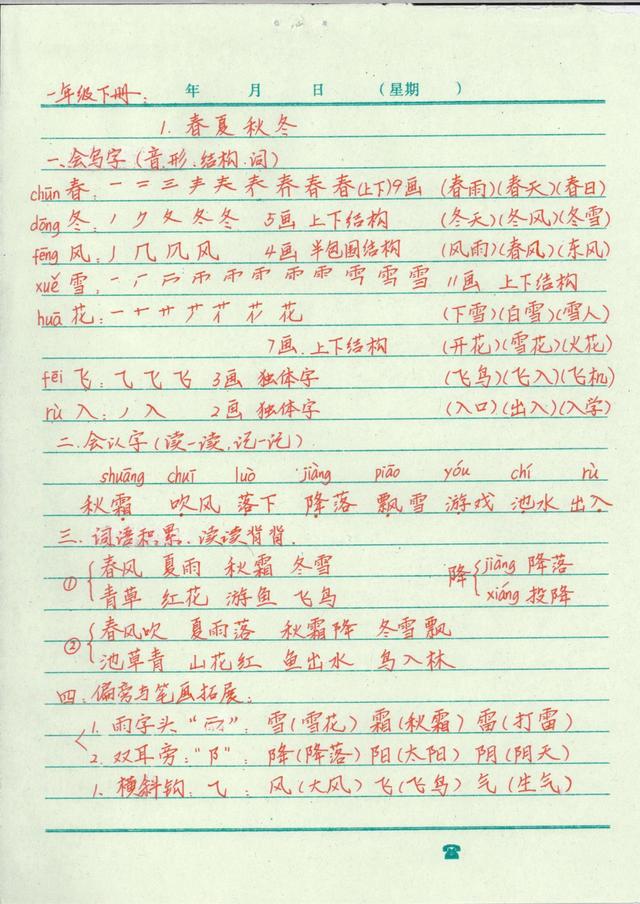 一年级下册: 年 月 日 (星期 )
1. 春夏秋冬
一、会写字(音、形、结构、词)
chūn 春: 一 二 三 𡗗 春 春 春(上下)9画 (春雨)(春天)(春日)
dōng 冬: 丿 ク 夂 冬 冬 5画 上下结构 (冬天)(冬风)(冬雪)
fēng 风: 丿 几 风 风 4画 半包围结构 (风雨)(春风)(东风)
xuě 雪: 雪 11画 上下结构
huā 花: 一 十 艹 花 (下雪)(白雪)(雪人)
7画、上下结构 (开花)(雪花)(火花)
fēi 飞: ⺄ 飞 飞 3画 独体字 (飞鸟)(飞入)(飞机)
rù 入: 丿 入 2画 独体字 (入口)(出入)(入学)
二、会认字(读一读、记一记)
shuāng chuī luò jiàng piāo yóu chí rù
秋霜 吹风 落下 降落 飘雪 游戏 池水 出入
三、词语积累、读读背背、
① 春风 夏雨 秋霜 冬雪 降 jiàng 降落
青草 红花 游鱼 飞鸟 xiáng 投降
② 春风吹 夏雨落 秋霜降 冬雪飘
池草青 山花红 鱼出水 鸟入林
四、偏旁与笔画拓展:
1. 雨字头“⻗”: 雪(雪花) 霜(秋霜) 雷(打雷)
2. 双耳旁:“阝”: 降(降落) 阳(太阳) 阴(阴天)
1. 横斜钩:⺄: 风(大风) 飞(飞鸟) 气(生气)